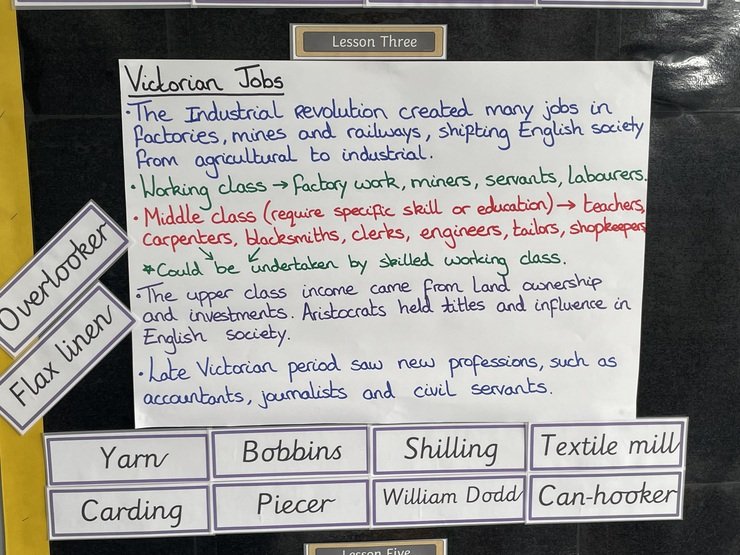 Lesson Three
Victorian Jobs
• The Industrial Revolution created many jobs in
factories, mines and railways, shifting English society
from agricultural to industrial.
• Working class → factory work, miners, servants, labourers.
• Middle class (require specific skill or education) → teachers,
carpenters, blacksmiths, clerks, engineers, tailors, shopkeepers
*Could be undertaken by skilled working class.
• The upper class income came from land ownership
and investments. Aristocrats held titles and influence in
English society.
• Late Victorian period saw new professions, such as
accountants, journalists and civil servants.
Overlooker
Flax linen
Yarn
Bobbins
Shilling
Textile mill
Carding
Piecer
William Dodd
Can-hooker
Lesson Five